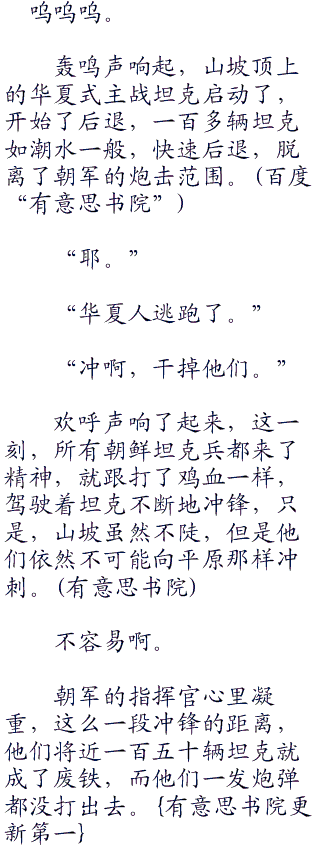 呜呜呜。
轰鸣声响起，山坡顶上
的华夏式主战坦克启动了，
开始了后退，一百多辆坦克
如潮水一般，快速后退，脱
离了朝军的炮击范围。(百度
“有意思书院”)
“耶。”
“华夏人逃跑了。”
“冲啊，干掉他们。”
欢呼声响了起来，这一
刻，所有朝鲜坦克兵都来了
精神，就跟打了鸡血一样，
驾驶着坦克不断地冲锋，只
是，山坡虽然不陡，但是他
们依然不可能向平原那样冲
刺。(有意思书院)
不容易啊。
朝军的指挥官心里凝
重，这么一段冲锋的距离，
他们将近一百五十辆坦克就
成了废铁，而他们一发炮弹
都没打出去。{有意思书院更
新第一}